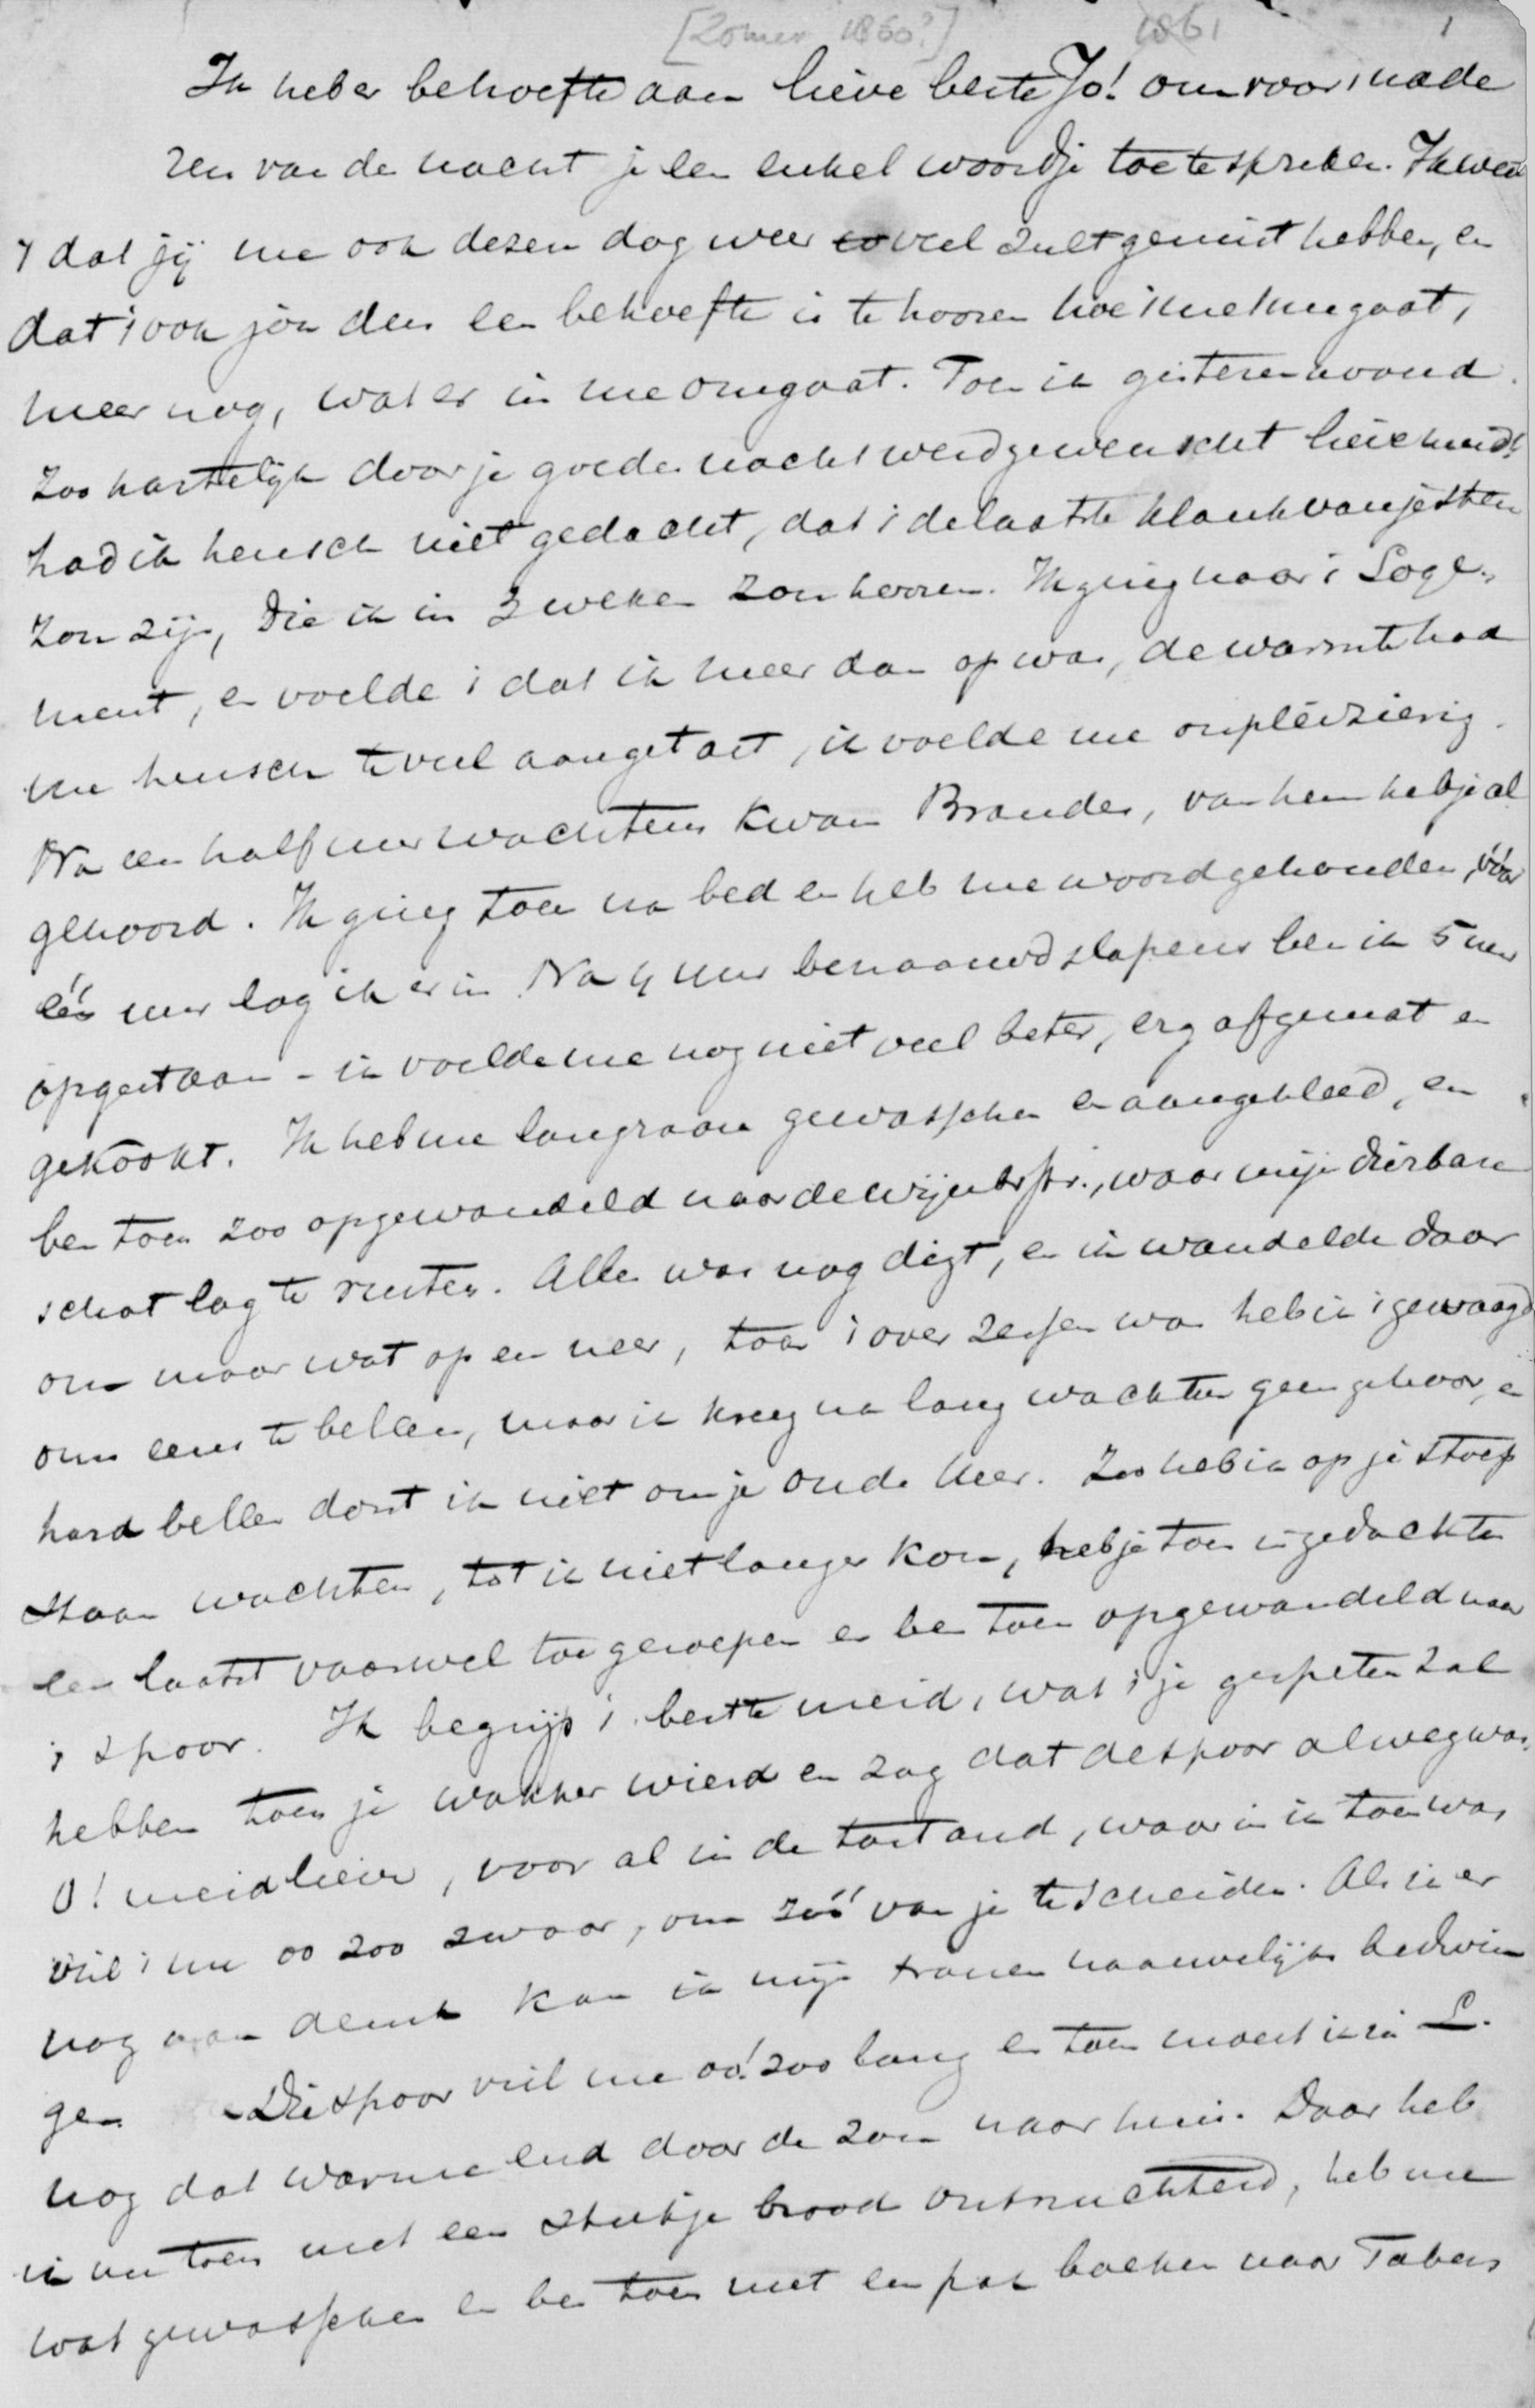 [Zomer 1860?] 1861 1
Ik heb er behoefte aan lieve beste Jo! om voor 't nade
ren van de nacht je een enkel woordje toe te spreken. Ik weet
dat jij me ook dezen dag weer veel zult gemist hebben, en
dat 't ook jou dus een behoefte is te hooren hoe 't me gaat,
meer nog, wat er in me omgaat. Toen ik gisterenavond
zoo hartelijk door je goede nacht werd gewenscht lieve meid!
had ik heusch niet gedacht, dat 't de laatste klank van je stem
zou zijn, die ik in 3 weken zou hooren. Ik ging naar 't Loge-
ment, en voelde 't dat ik meer dan op was, de warmte had
me heusch te veel aangetast, ik voelde me onpleizierig.
Na een half uur wachtens kwam Brandes, van hem heb je al
gehoord. Ik ging toen na bed en heb me woord gehouden, vóór
één uur lag ik er in. Na 4 uur benaauwd slapens ben ik 5 uur
opgestaan - ik voelde me nog niet veel beter, erg afgemat en
gekookt. Ik heb me langzaam gewasschen en aangekleed, en
ben toen zoo opgewandeld naar de Wijnbrstr., waar mijn dierbare
schat lag te rusten. Alles was nog digt, en ik wandelde daar
om maar wat op en neer, toen 't over zessen was heb ik 't gewaagd
om eens te bellen, maar ik kreeg na lang wachten geen gehoor, en
hard bellen dorst ik niet om je oude Heer. Zoo heb ik op je stoep
staan wachten, tot ik niet langer kon, heb je toen in gedachten
een laatst vaarwel toegeroepen en ben toen opgewandeld naar
't spoor. Ik begrijp 't beste meid, wat 't je gespeten zal
hebben toen je wakker wierd en zag dat de spoor al weg was.
O! meidlieve, voor al in de toestand, waarin ik toen was,
viel 't me oo zoo zwaar, om zóó van je te scheiden. Als ik er
nog aan denk kan ik mijn tranen naauwelijks bedwin
gen. Die spoor viel me oó! zoo lang en toen moest ik in L.
nog dat warme eind door de zon naar huis. Daar heb
ik me toen met een stukje brood ontnuchterd, heb me
wat gewasschen en ben toen met een pak boeken naar Tabers